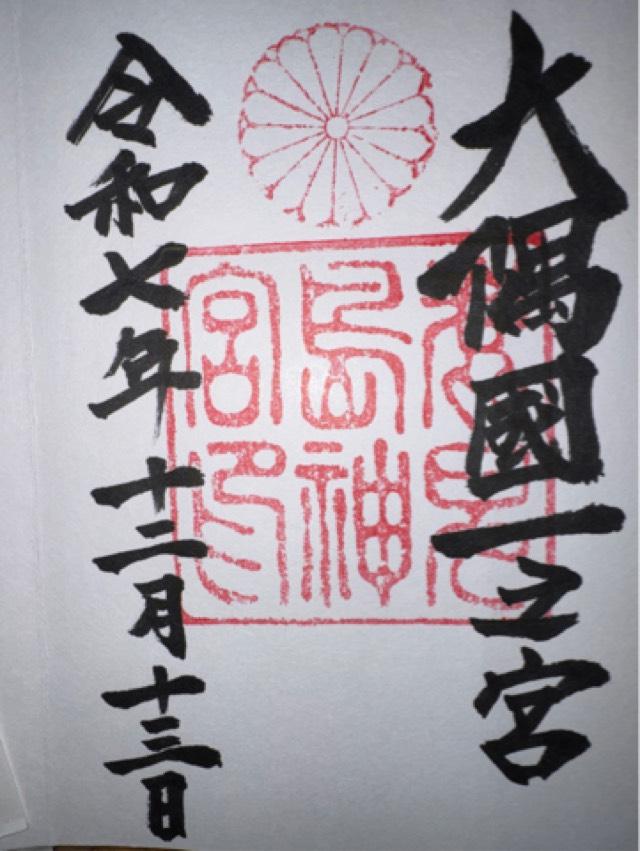 大隅國一之宮
鹿兒
島神
宮印
令和七年十二月十三日